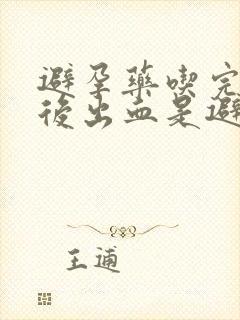 避孕藥喫完
後出血是避
王逋